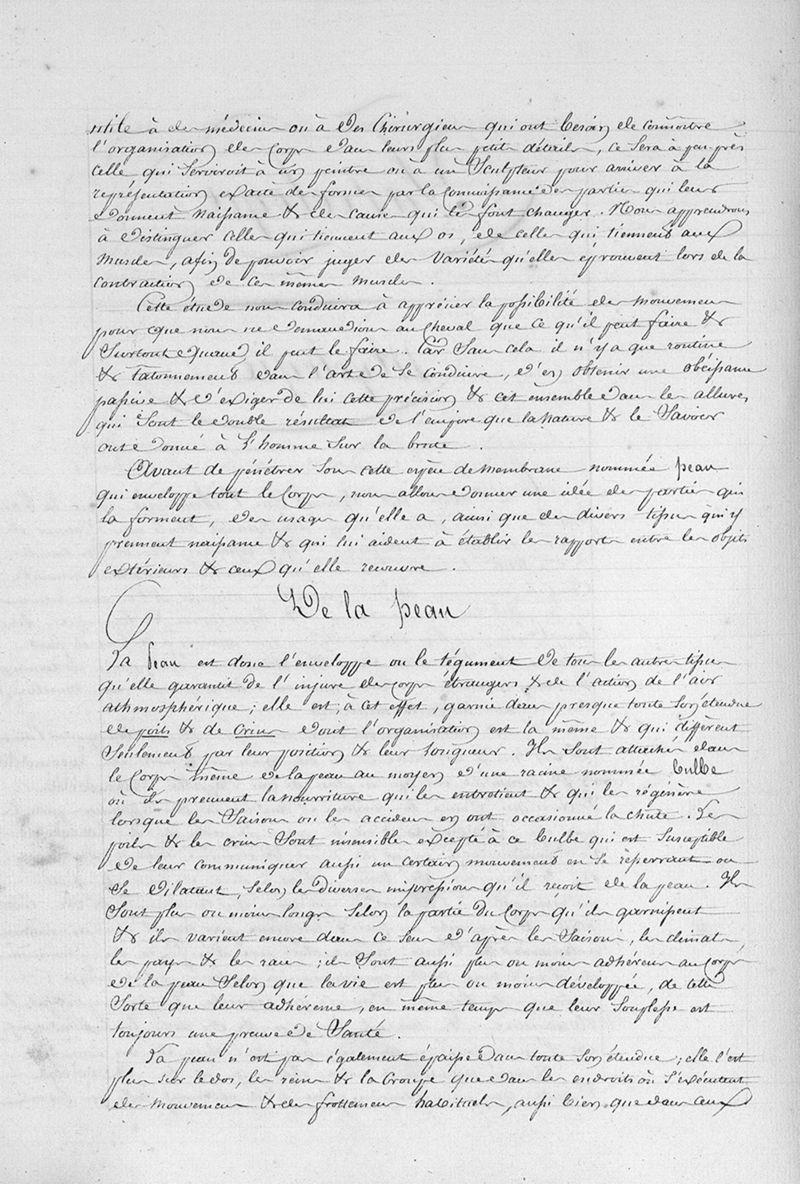 utile à des médecins ou à des Chirurgiens qui ont besoin de connoitre
l'organisation des Corps dans leurs plus petits détails, ce sera à peu près
celle qui serviroit à un peintre ou à un Sculpteur pour arriver à la
représentation exacte des formes par la Connoissance des parties qui leurs
donnent Naissance & des causes qui les font changer. Nous apprendrons
à distinguer celles qui tiennent aux os, de celles qui tiennent aux
Muscles, afin de pouvoir juger des Variétés qu'elles éprouvent lors de la
Contraction de ces mêmes Muscles.
Cette étude nous conduira à apprécier la possibilité des Mouvemens
pour que nous ne demandions au Cheval que ce qu'il peut faire &
Surtout quand il peut le faire. Car Sans cela il n'y a que routine
& tatonnement dans l'art de le conduire, d'en obtenir une obéissance
passive & d'exiger de lui cette précision & cet ensemble dans les allures
qui Sont le double résultat de l'empire que la Nature & le Savoir
ont donné à l'homme Sur la brute.
Avant de pénétrer Sous cette espèce de membrane nommée peau
qui enveloppe tout le Corps, nous allons donner une idée des parties qui
la forment, des usages qu'elle a, ainsi que des divers tissus qui y
prennent naissance & qui lui aident à établir les rapports entre les objets
extérieurs & ceux qu'elle recouvre.
De la peau
La peau est donc l'enveloppe ou le tégument de tous les autres tissus
qu'elle garantit de l'injure des Corps étrangers & de l'action de l'air
athmosphérique; elle est, à cet effet, garnie dans presque toute Son étendue
de poils & de Crins dont l'organisation est la même & qui diffèrent
Seulement par leur position & leur longueur. Ils Sont attachés dans
le Corps même de la peau au moyen d'une racine nommée bulbe
où ils prennent la nourriture qui les entretient & qui les régénère
lorsque les Saisons ou les accidens en ont occasionné la chute. Les
poils & les crins Sont insensibles excepté à ce bulbe qui est Susceptible
de leur communiquer aussi un certain mouvement en Se resserrant ou
Se dilatant, Selon les diverses impressions qu'il reçoit de la peau. Ils
Sont plus ou moins longs Selon la partie du Corps qu'ils garnissent
& ils varient encore dans ce Sens d'après les Saisons, les climats,
les pays & les races; ils Sont aussi plus ou moins adhérens au Corps
de la peau Selon que la vie est plus ou moins développée, de telle
Sorte que leur adhérence, en même temps que leur Souplesse est
toujours une preuve de Santé.
La peau n'est pas également épaisse dans toute Son étendue; elle l'est
plus sur le dos, les reins & la Croupe que dans les endroits où S'exécutent
des Mouvemens & des frottemens habituels, aussi bien que dans ceux